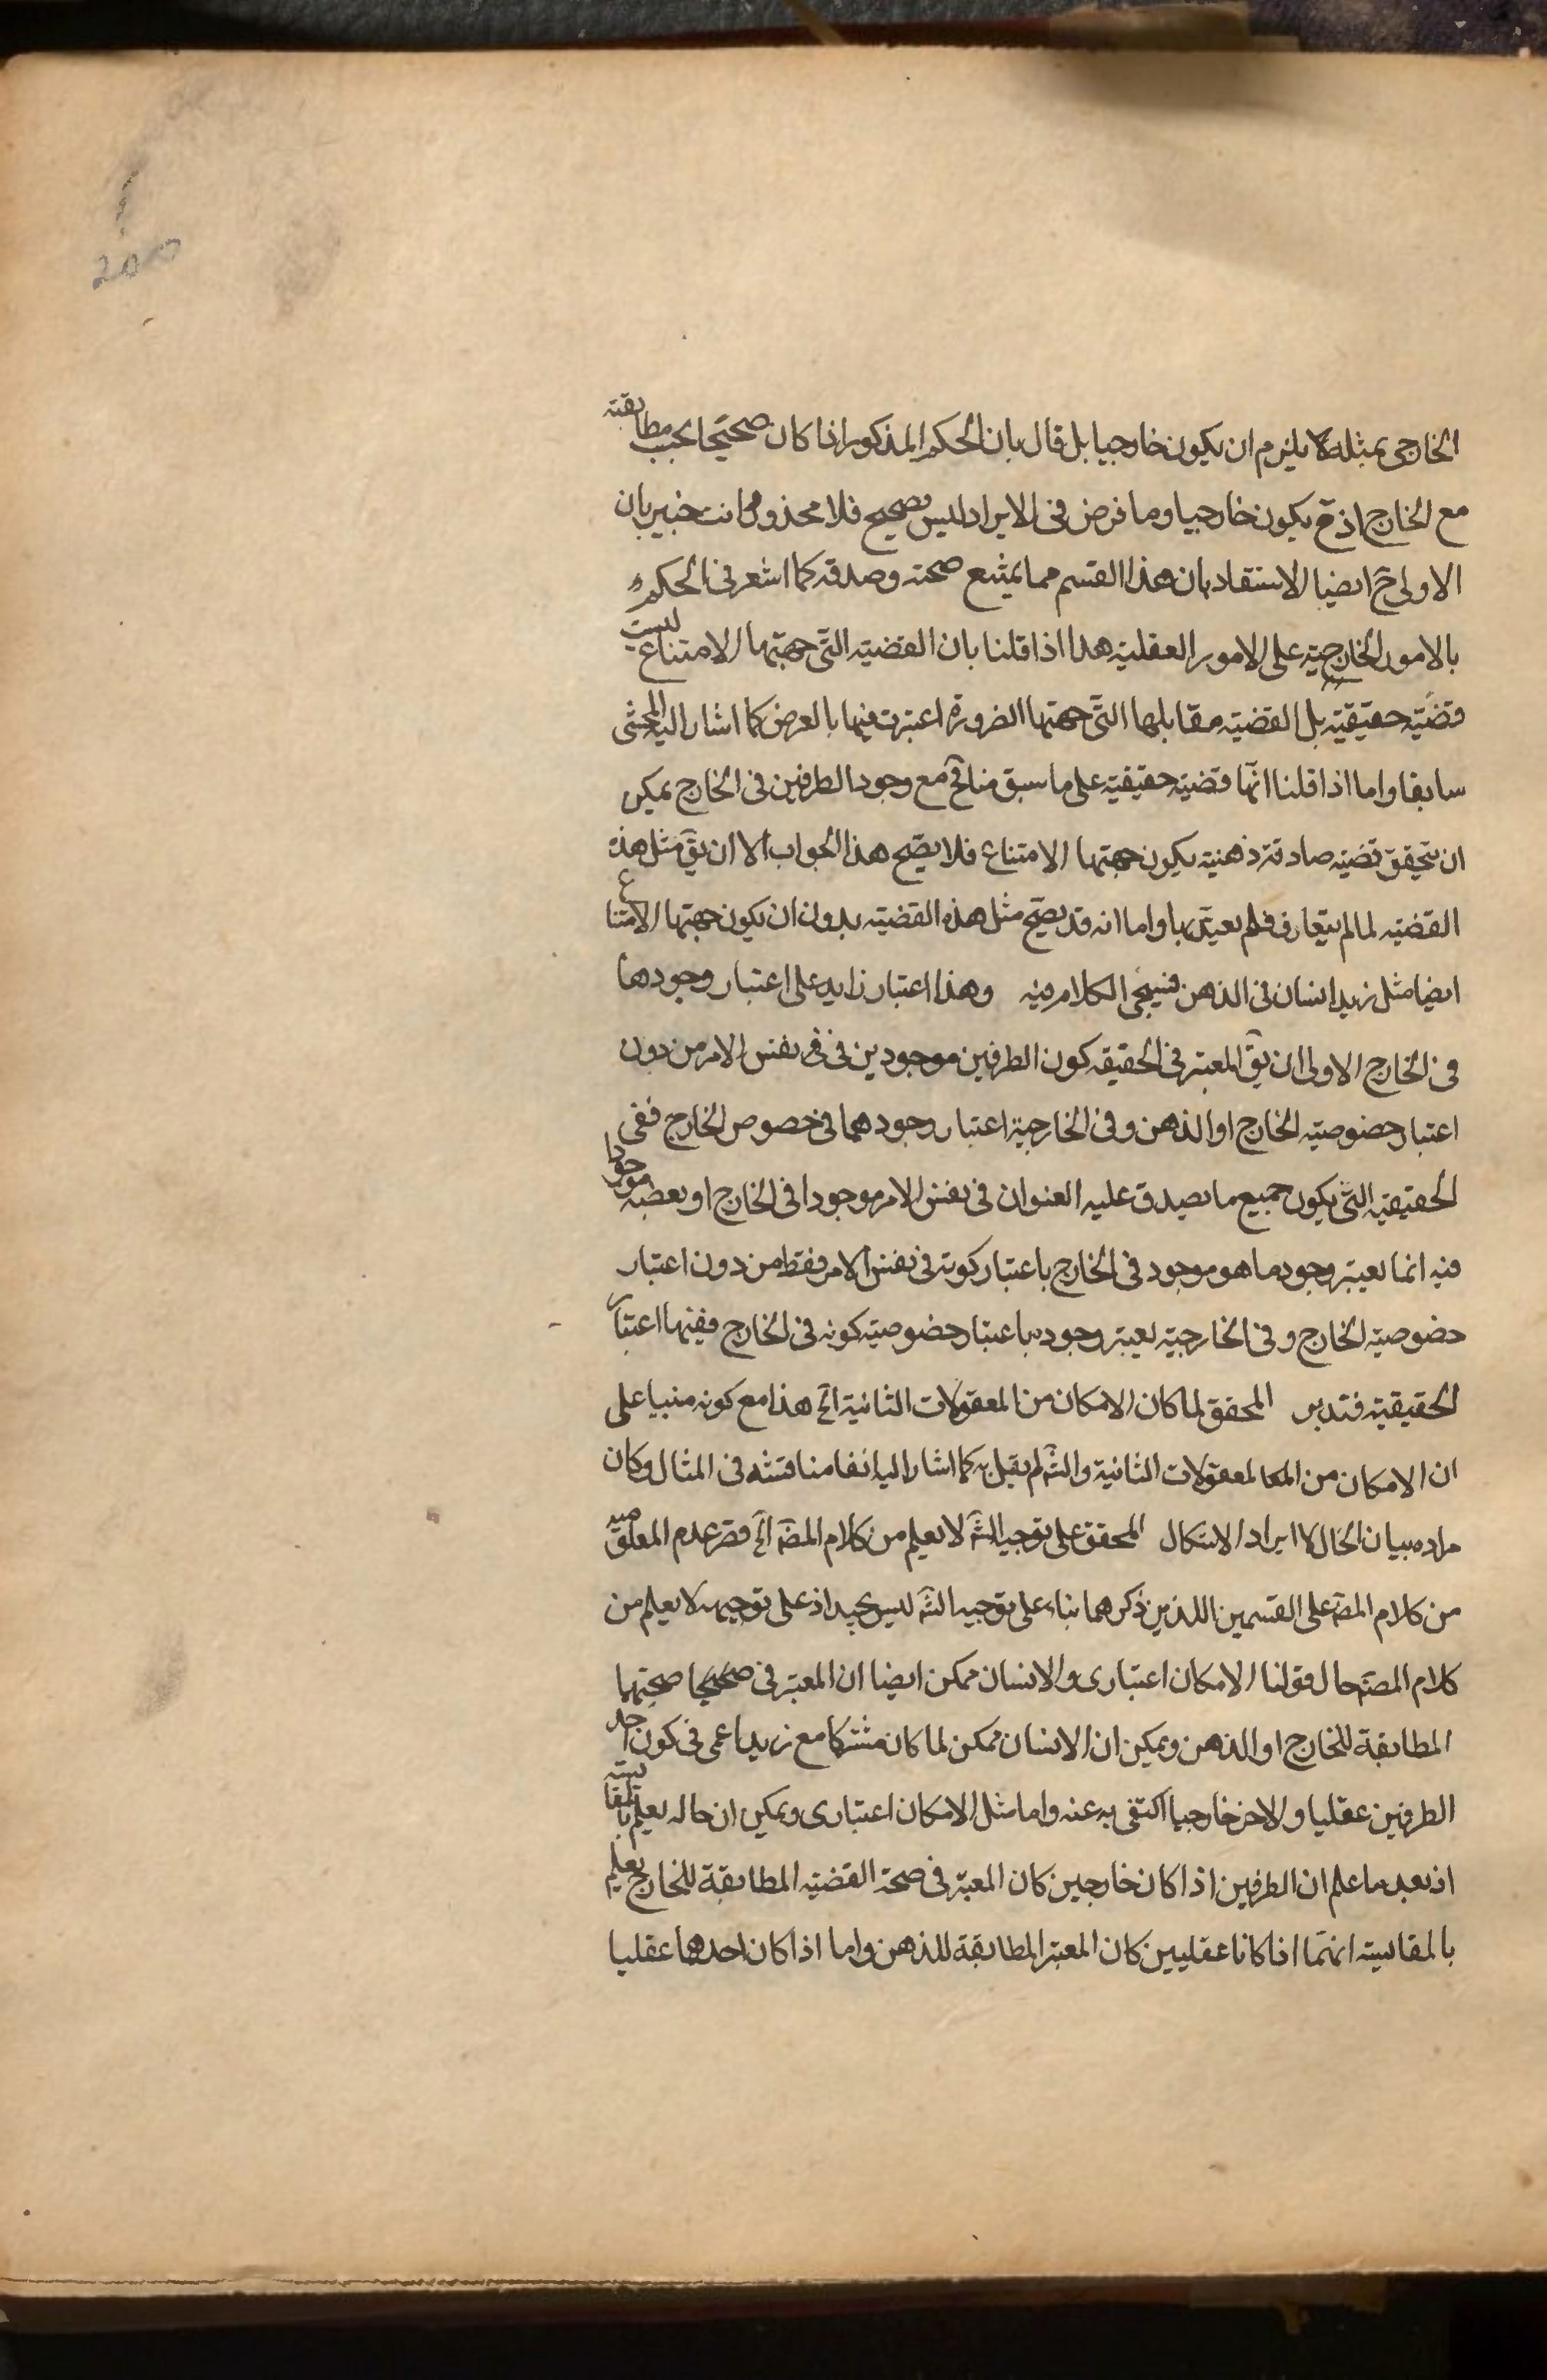 الخارجى بمثله لا يلزم ان يكون خارجيا بل قال بان الحكم المذكور اذا كان صحيحا بحسب مطابقته
مع الخارج اذ ح يكون خارجيا وما فرض فى الايراد ليس بصحيح فلا محذور وانت خبير بان
الاولى ح ايضا الاستقاد بان هذا القسم مما يمتنع صحته وصدقه كما اشعر فى الحكم
بالامور الخارجية على الامور العقلية هذا اذا قلنا بان القضيه التى جهتها الامتناع ليست
قضيه حقيقيه بل القضيه مقابلها التى جهتها الضرورة اعتبرت فيها بالعرض كما اشار اليه المحشى
سابقا واما اذا قلنا انها قضيه حقيقيه على ما سبق منا فح مع وجود الطرفين فى الخارج يمكن
ان يتحقق قضيه صادقة ذهنية يكون جهتها الامتناع فلا يصح هذا الجواب الا ان يق مثل هذه
القضيه لما لم يتعارف فلم يعتد بها واما انه قد يصح مثل هذه القضيه بدون ان يكون جهتها الامتناع
ايضا مثل زيد انسان فى الذهن فسيجئ الكلام فيه وهذا اعتبار زايد على اعتبار وجودهما
فى الخارج الاولى ان يق المعتبر فى الحقيقه كون الطرفين موجودين فى فى نفس الامر من دون
اعتبار خصوصيه الخارج او الذهن وفى الخارجية اعتبار وجودهما فى خصوص الخارج ففى
الحقيقيه التى يكون جميع ما يصدق عليه العنوان فى نفس الامر موجودا فى الخارج او بعضه موجودا
فيه انما يعتبر وجود ما هو موجود فى الخارج باعتبار كونه فى نفس الامر فقط من دون اعتبار
خصوصية الخارج وفى الخارجية يعتبر وجوده باعتبار خصوصية كونه فى الخارج ففيها اعتبار
الحقيقية فتدبر المحقق لما كان الامكان من المعقولات الثانية الخ هذا مع كونه مبنيا على
ان الامكان من المعقولات الثانية والش لم يقل به كما اشار اليه انفا مناقشه فى المثال وكان
مراده بيان الحال لا ايراد الاشكال المحقق على توجيه الش لا يعلم من كلام المص الخ قصر عدم المعلوميه
من كلام المص على القسمين اللذين ذكرهما بناء على توجيه الش ليس بجيد اذ على توجيهه لا يعلم من
كلام المص حال قولنا الامكان اعتبارى والانسان ممكن ايضا ان المعتبر فى صحتها
المطابقة للخارج او الذهن ويمكن ان الانسان ممكن لما كان مشتركا مع زيد اعمى فى كون احد
الطرفين عقليا والاخر خارجيا اكتفى به عنه واما مثل الامكان اعتبارى ويمكن ان حاله يعلم بالمقايسه
اذ بعد ما علم ان الطرفين اذا كان خارجين كان المعتبر فى صحة القضيه المطابقة للخارج يعلم
بالمقايسه انهما اذا كانا عقليين كان المعتبر المطابقة للذهن واما اذا كان احدهما عقليا